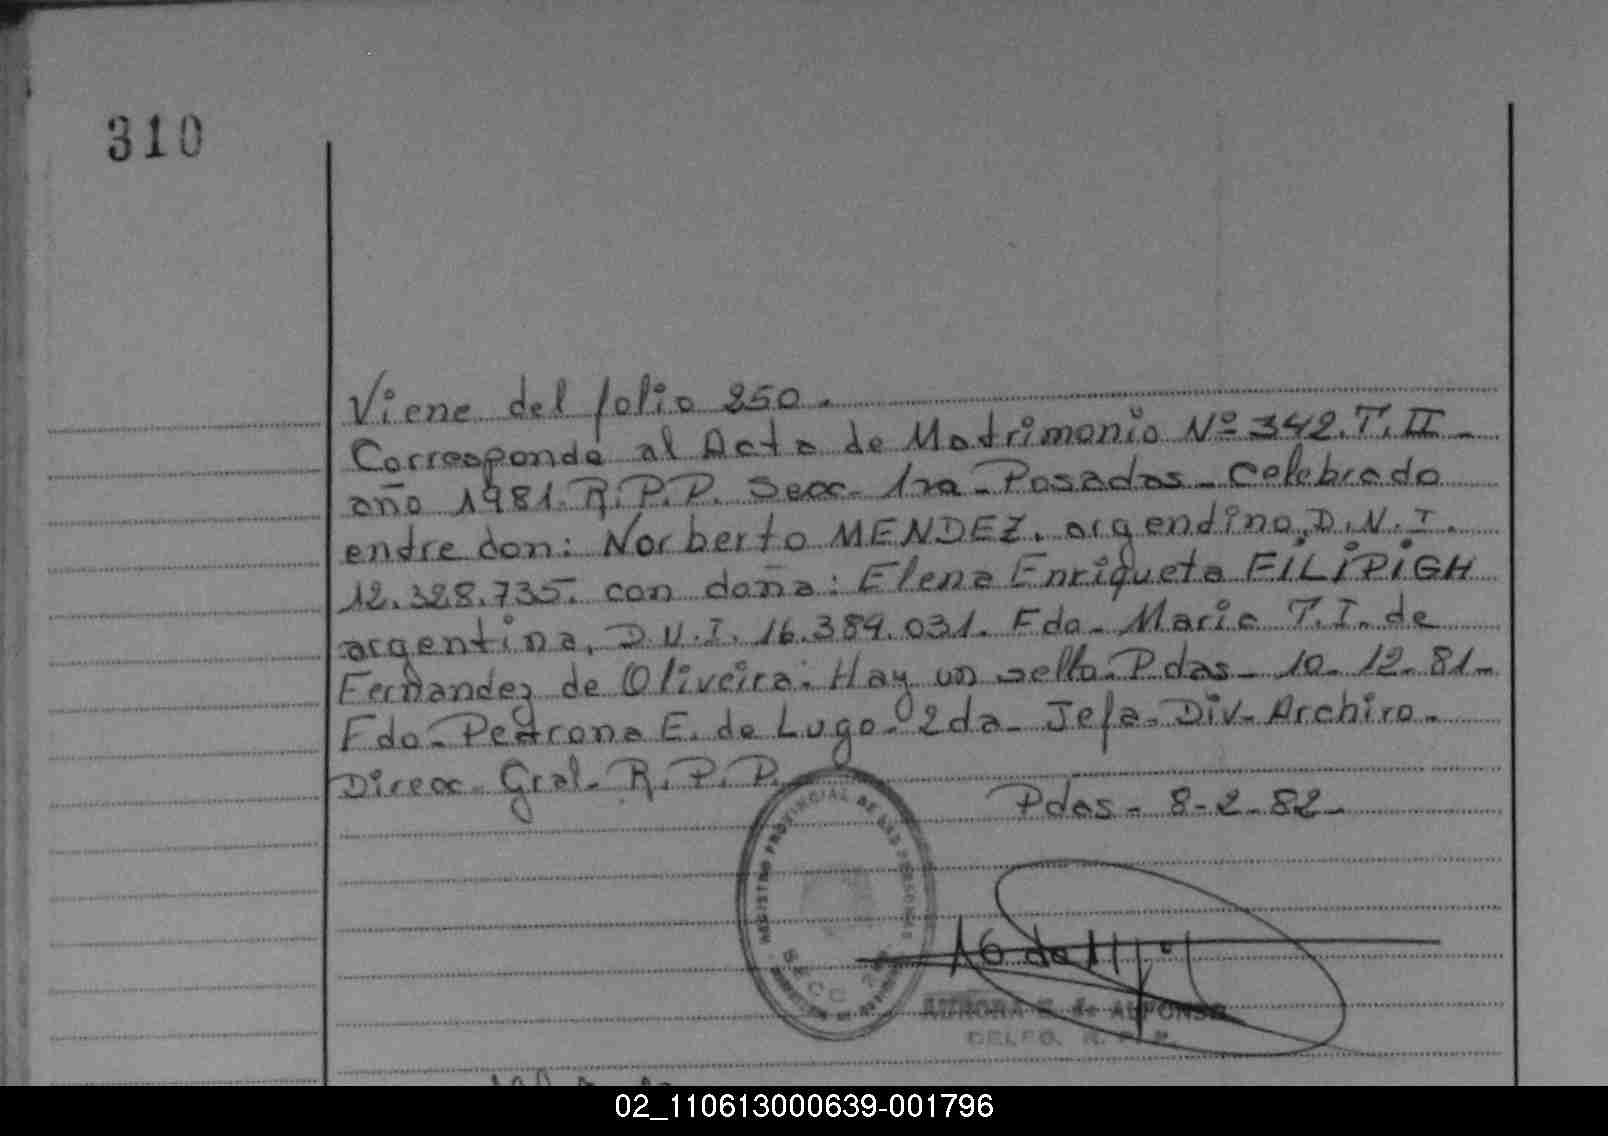 310
Viene del folio 250.
Corresponde al Acta de Matrimonio Nº 342. T. II -
año 1981. R. P. P. Secc. 1ra - Posadas - Celebrado
entre don: Norberto MENDEZ, argentino, D. N. I.
12.328.735. con doña: Elena Enriqueta FILIPIGH
argentina, D. N. I. 16.389.031. Fdo - Maria T. I. de
Fernandez de Oliveira. Hay un sello. Pdas - 10-12-81-
Fdo - Petrona E. de Lugo - 2da - Jefa - Div - Archivo -
Direcc. Gral - R. P. P.
Pdas - 8-2-82-
REGISTRO PROVINCIAL DE LAS PERSONAS
SECC
AURORA E. de ALFONSO
DELEG. R. P. P.
02_110613000639-001796